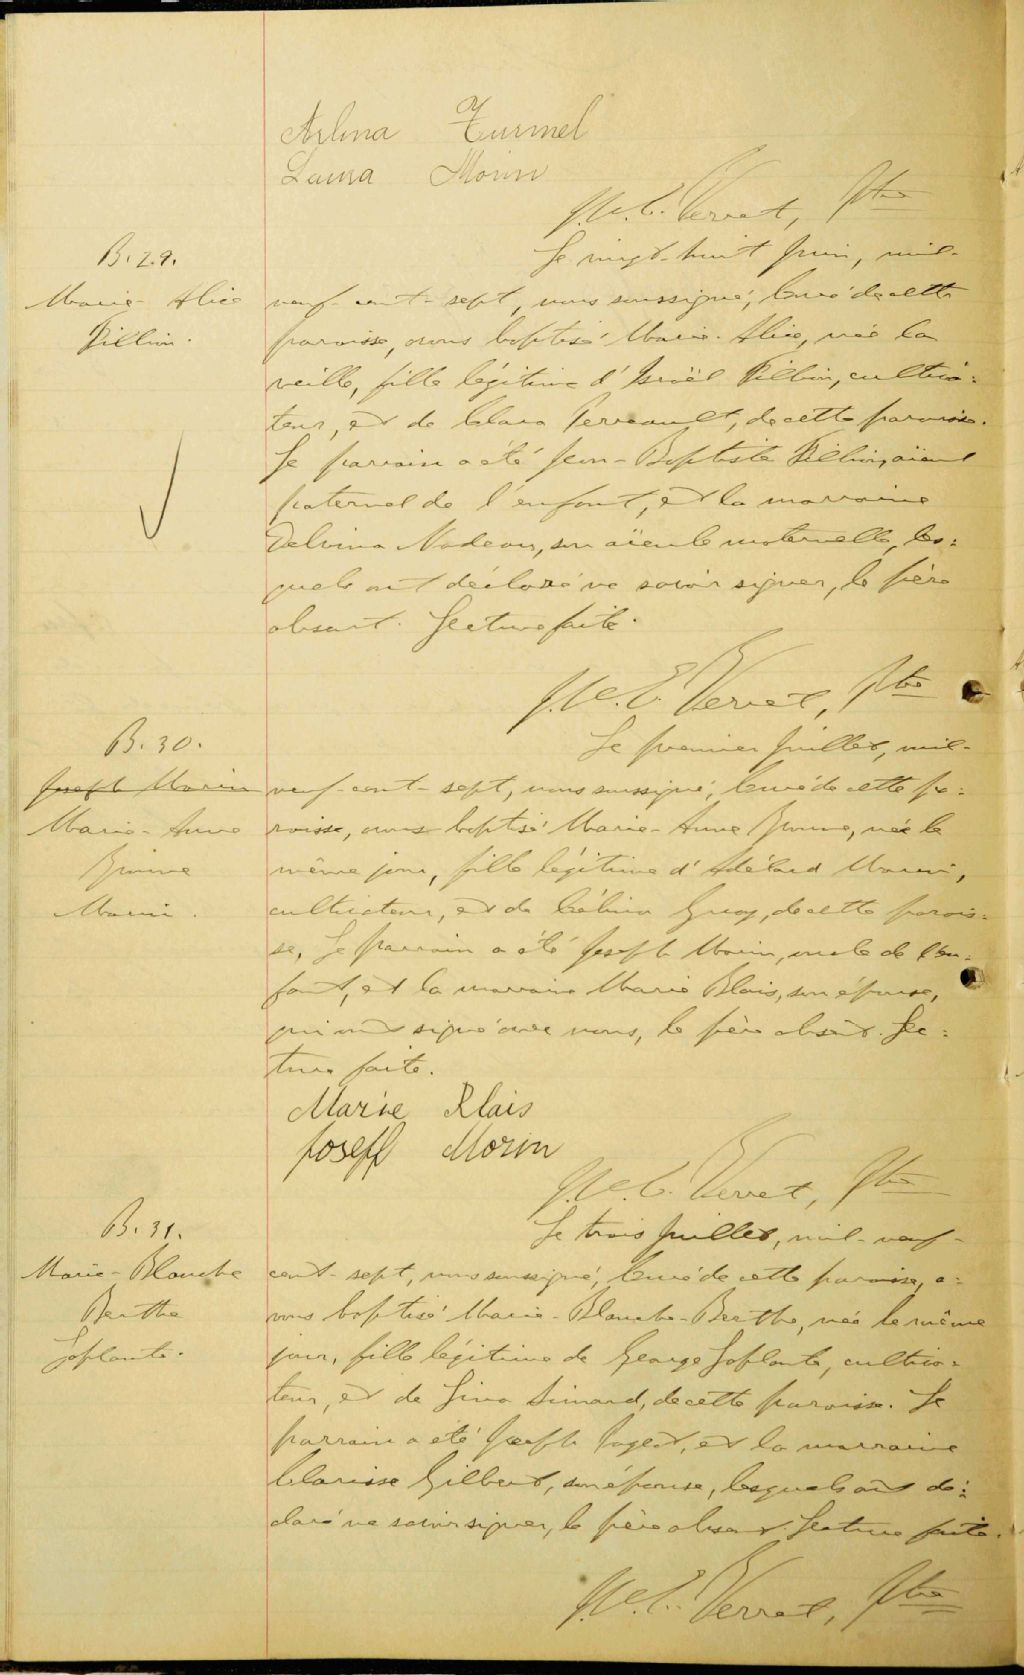 Arlina Turmel
Laura Morin
Verret, Ptre
B. 29.
Marie-Alice
Fillion.
Le vingt-huit juin, mil-
neuf-cent-sept, nous soussigné, Curé de cette
paroisse, avons baptisé Marie-Alice, née la
veille, fille légitime d'Israël Fillion, cultiva-
teur, et de Clara Perreault, de cette paroisse.
Le parrain a été Jean-Baptiste Fillion, aïeul
paternel de l'enfant, et la marraine
Delvina Nadeau, son aïeule maternelle, les-
quels ont déclaré ne savoir signer, le père
absent. Lecture faite.
Verret, Ptre
B. 30.
Joseph Morin
Marie-Anne
Yvonne
Morin.
Le premier juillet, mil-
neuf-cent-sept, nous soussigné, Curé de cette pa-
roisse, avons baptisé Marie-Anne Yvonne, née le
même jour, fille légitime d'Adélard Morin,
cultivateur, et de Célina Guay, de cette parois-
se. Le parrain a été Joseph Morin, oncle de l'en-
fant, et la marraine Marie Blais, son épouse,
qui ont signé avec nous, le père absent. Lec-
ture faite.
Marie Blais
Joseph Morin
Verret, Ptre
B. 31.
Marie-Blanche
Berthe
Laplante.
Le trois juillet, mil-neuf-
cent-sept, nous soussigné, Curé de cette paroisse, a-
vons baptisé Marie-Blanche-Berthe, née le même
jour, fille légitime de George Laplante, cultiva-
teur, et de Lina Simard, de cette paroisse. Le
parrain a été Joseph et la marraine
Clarisse Gilbert, son épouse, lesquels ont dé-
claré ne savoir signer, le père absent. Lecture faite.
Verret, Ptre